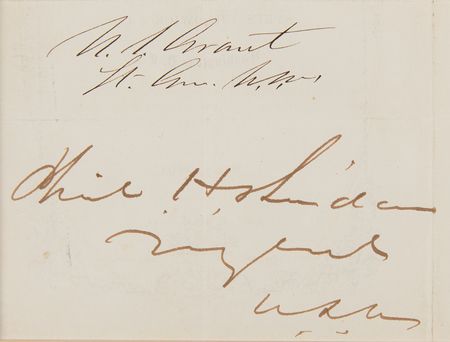 U. S. Grant
Lt. Gen. U.S.A.
Phil H Sheridan
Maj Genl
U.S.A.